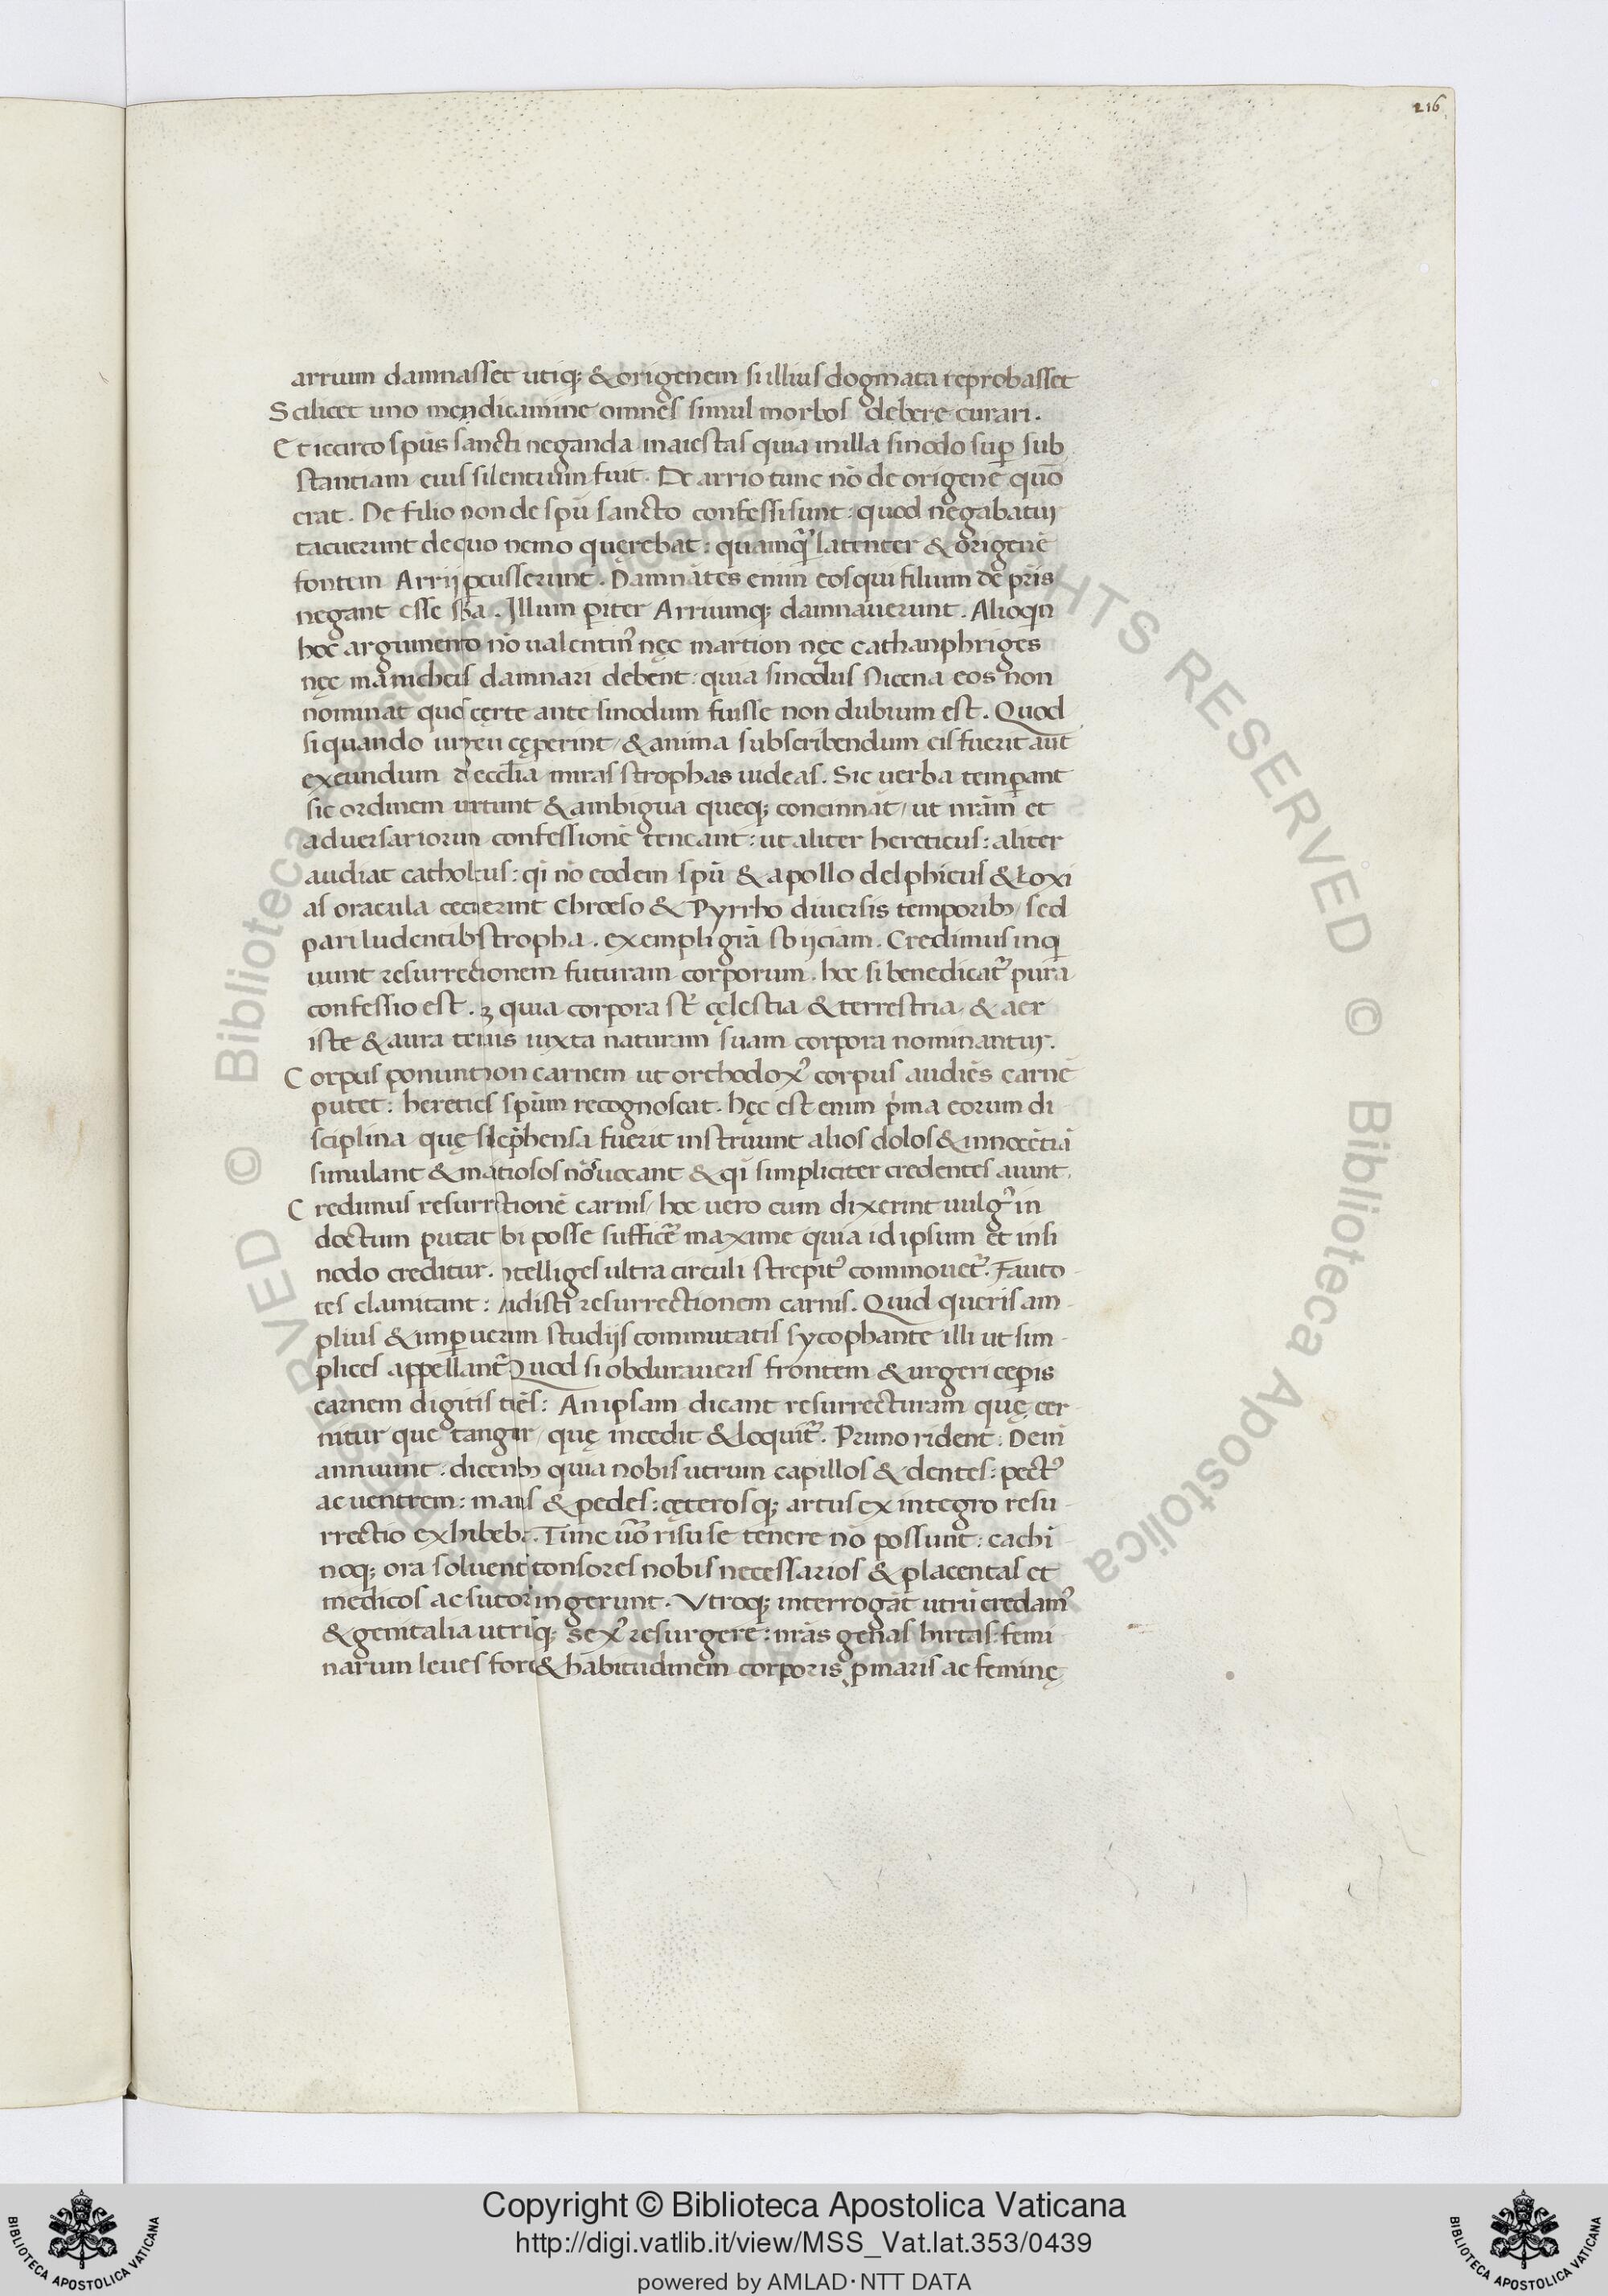 216
arrium damnasset utiq; & origenem si illius dogmata reprobasset
Scilicet uno mendicamine omnes simul morbos debere curari.
Et iccirco spūs sancti neganda maiestas quia in illa sinodo sup sub
stantiam eius silentium fuit. De arrio tunc nō de origene quō
erat. De filio non de spū sancto confessi sunt: quod negabatur
tacuerunt de quo nemo quęrebat: quamq̃ latenter & origenē
fontem Arrij pcusserunt. Damnātes enim eos qui filium de pr̄is
negant esse sba. Illum piter Arriumq; damnauerunt. Alioqn
hoc argumento nō ualentin᾿ nęc martion nęc cathanphriges
nęc manicheis damnari debent: quia sinodus Nicena eos non
nominat quos cęrte ante sinodum fuisse non dubium est. Quod
si quando urgeri cęperint / & anima subscribendum eis fuerit aut
exeundum d ecclia miras strophas uideas. Sic uerba tempant
sic ordinem uertunt & ambigua queq; concinnāt / ut nr̄am et
aduersariorum confessionē teneant: ut aliter hereticus: aliter
audiat catholicus: qi nō eodem spū & apollo delphicus & Loxi
as oracula cecierint Chroeso & Pyrrho diuersis temporibɔ / sed
pari ludentibɔ stropha. exempli grā sbijciam. Credimus inq
uunt resurrectionem futuram corporum. hoc si benedicat᾿ pura
confessio est. ʒ quia corpora st᾿ cęlestia & terrestria & aer
iste & aura tenuis iuxta naturam suam corpora nominantur.
Corpus ponunt non carnem ut orthodox᾿ corpus audiēs carnē
putet: hereticus spūm recognoscat. hęc est enim pma eorum di
sciplina quę si dephensa fuerit instruunt alios dolos & innocētiā
simulant & maliciosos nos uocant & qi simpliciter credentes aiunt.
Credimus resurrectionē carnis / hoc uero cum dixerint uulg᾿ in
doctum putat sibi posse sufficē maxime quia id ipsum et in si
nodo creditur. Intelliges ultra circuli strepit᾿ commouet᾿. Fauto
res clamitant: Audisti resurrectionem carnis. Quid queris am
plius & in puerum studijs commutatis sycophante illi ut sim
plices appellant᾿. Quod si obduraueris frontem & urgeri cepis
carnem digitis tēs: An ipsam dicant resurrecturam quę cer
nitur que tangitur / quę incedit & loquit᾿. Primo rident: Dein
annuunt. dicentibɔ quia nobis utrum capillos & dentes: pect᾿
ac uentrem: manus & pedes: cęterosq; artus ex integro resu
rrectio exhibebat. Tunc uēo risu se tenere nō possunt: cachi
noq; ora soluentes tonsores nobis necessarios & placentas et
medicos ac sutores ingerunt. Vtroq; interrogāt utrū credam᾿
& genitalia utriusq; sex᾿ resurgere: nr̄as genas hirtas: femi
narum leues fore & habitudinem corporis p maris ac feminę
Copyright © Biblioteca Apostolica Vaticana
http://digi.vatlib.it/view/MSS_Vat.lat.353/0439
powered by AMLAD·NTT DATA